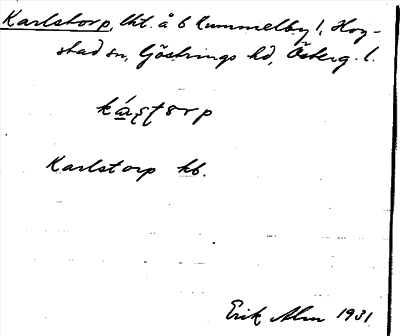 Karlstorp, lht. å 6 Kummelby 1, Hog-
stad sn, Göstrings hd, Österg. l.
kástorp
Karlstorp kb.
Erik Alm 1931